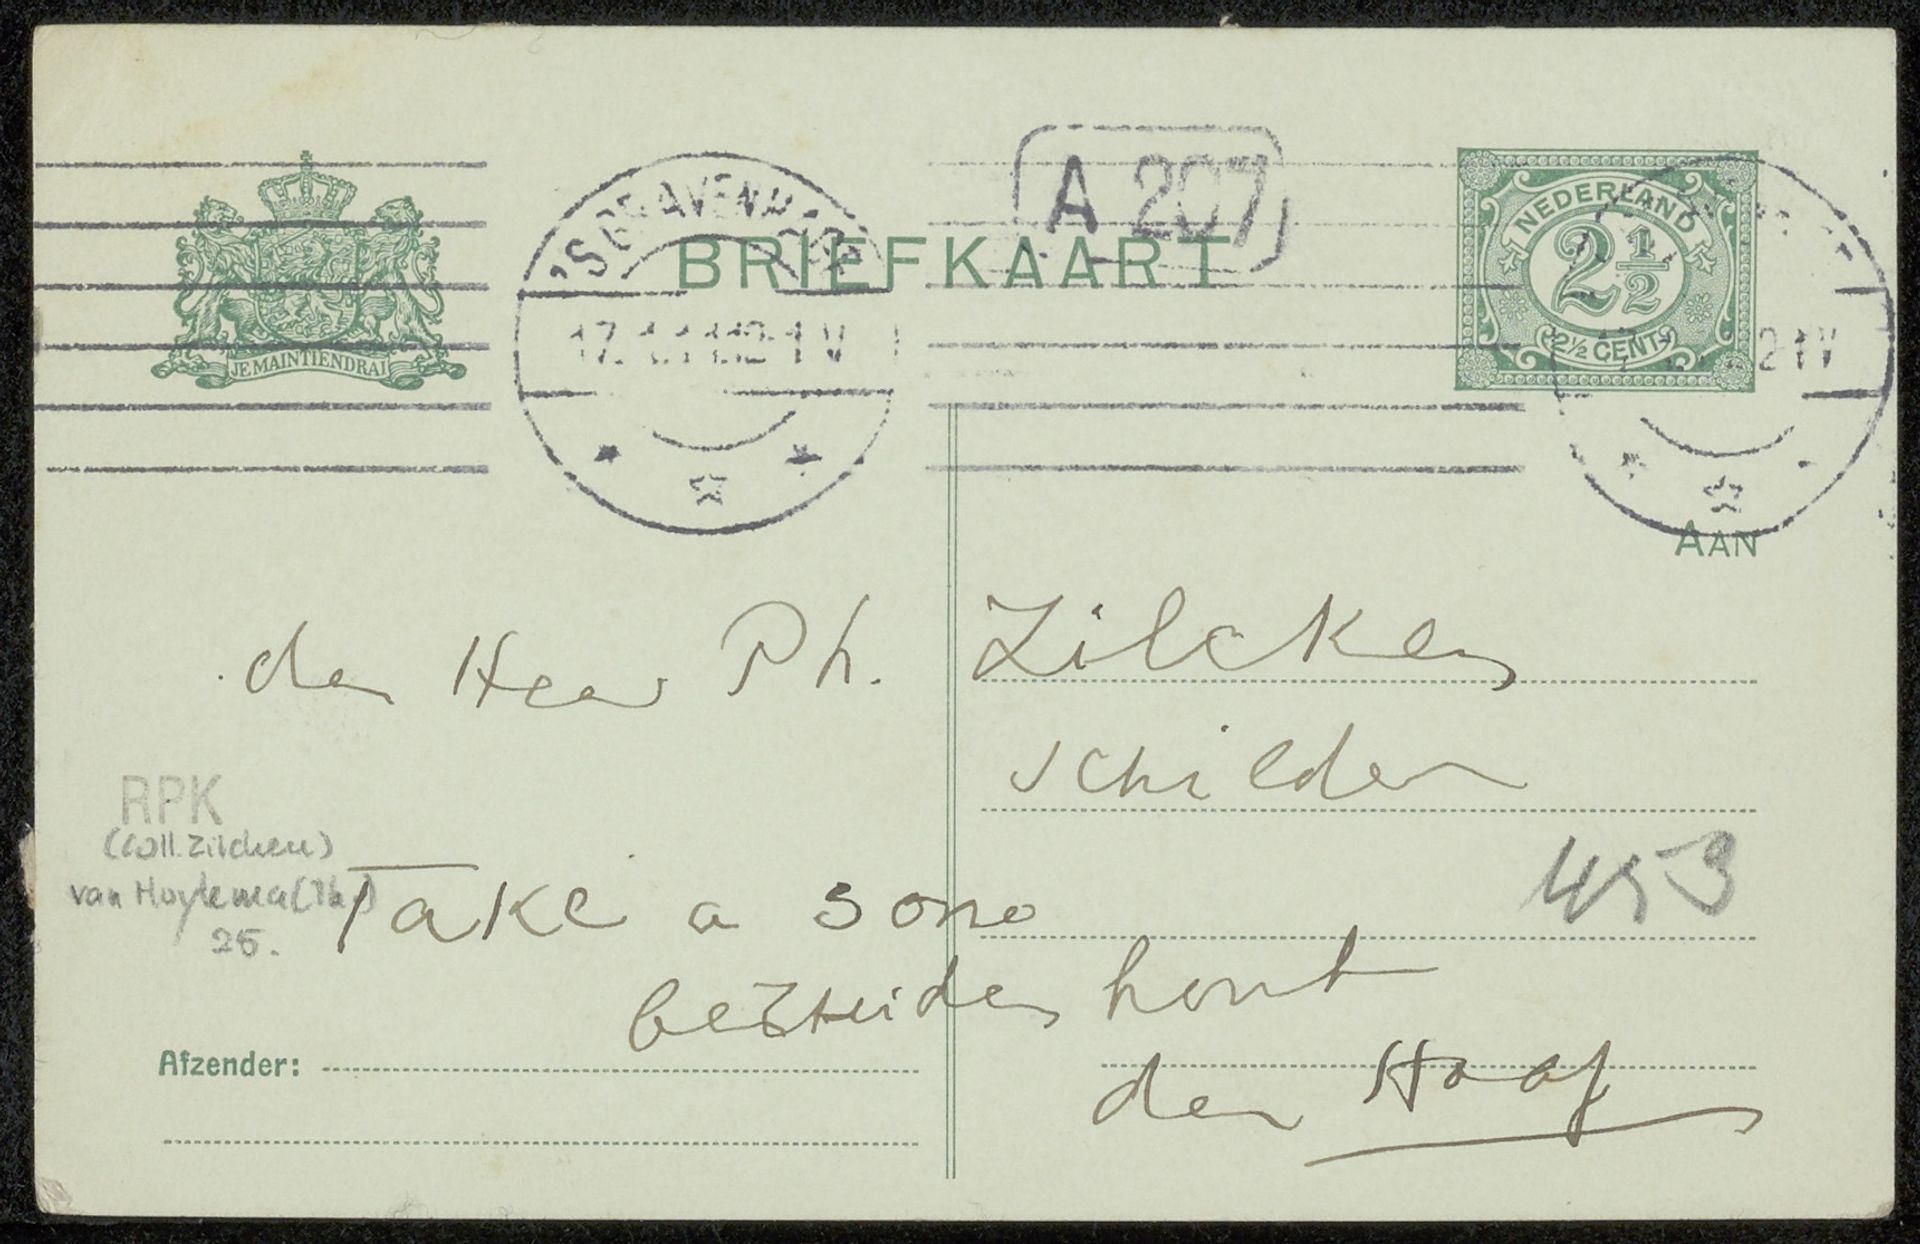 A 207
'S GRAVENHAGE
BRIEFKAART
NEDERLAND
2 1/2
2½ CENT
JE MAINTIENDRAI
12-1 V
AAN
den Heer Ph. Zilcken
schilder
RPK
(Coll. Zilcken)
van Hoytema (Th.)
25.
Take a sono
453
bezuidenhout
den Haag
Afzender: